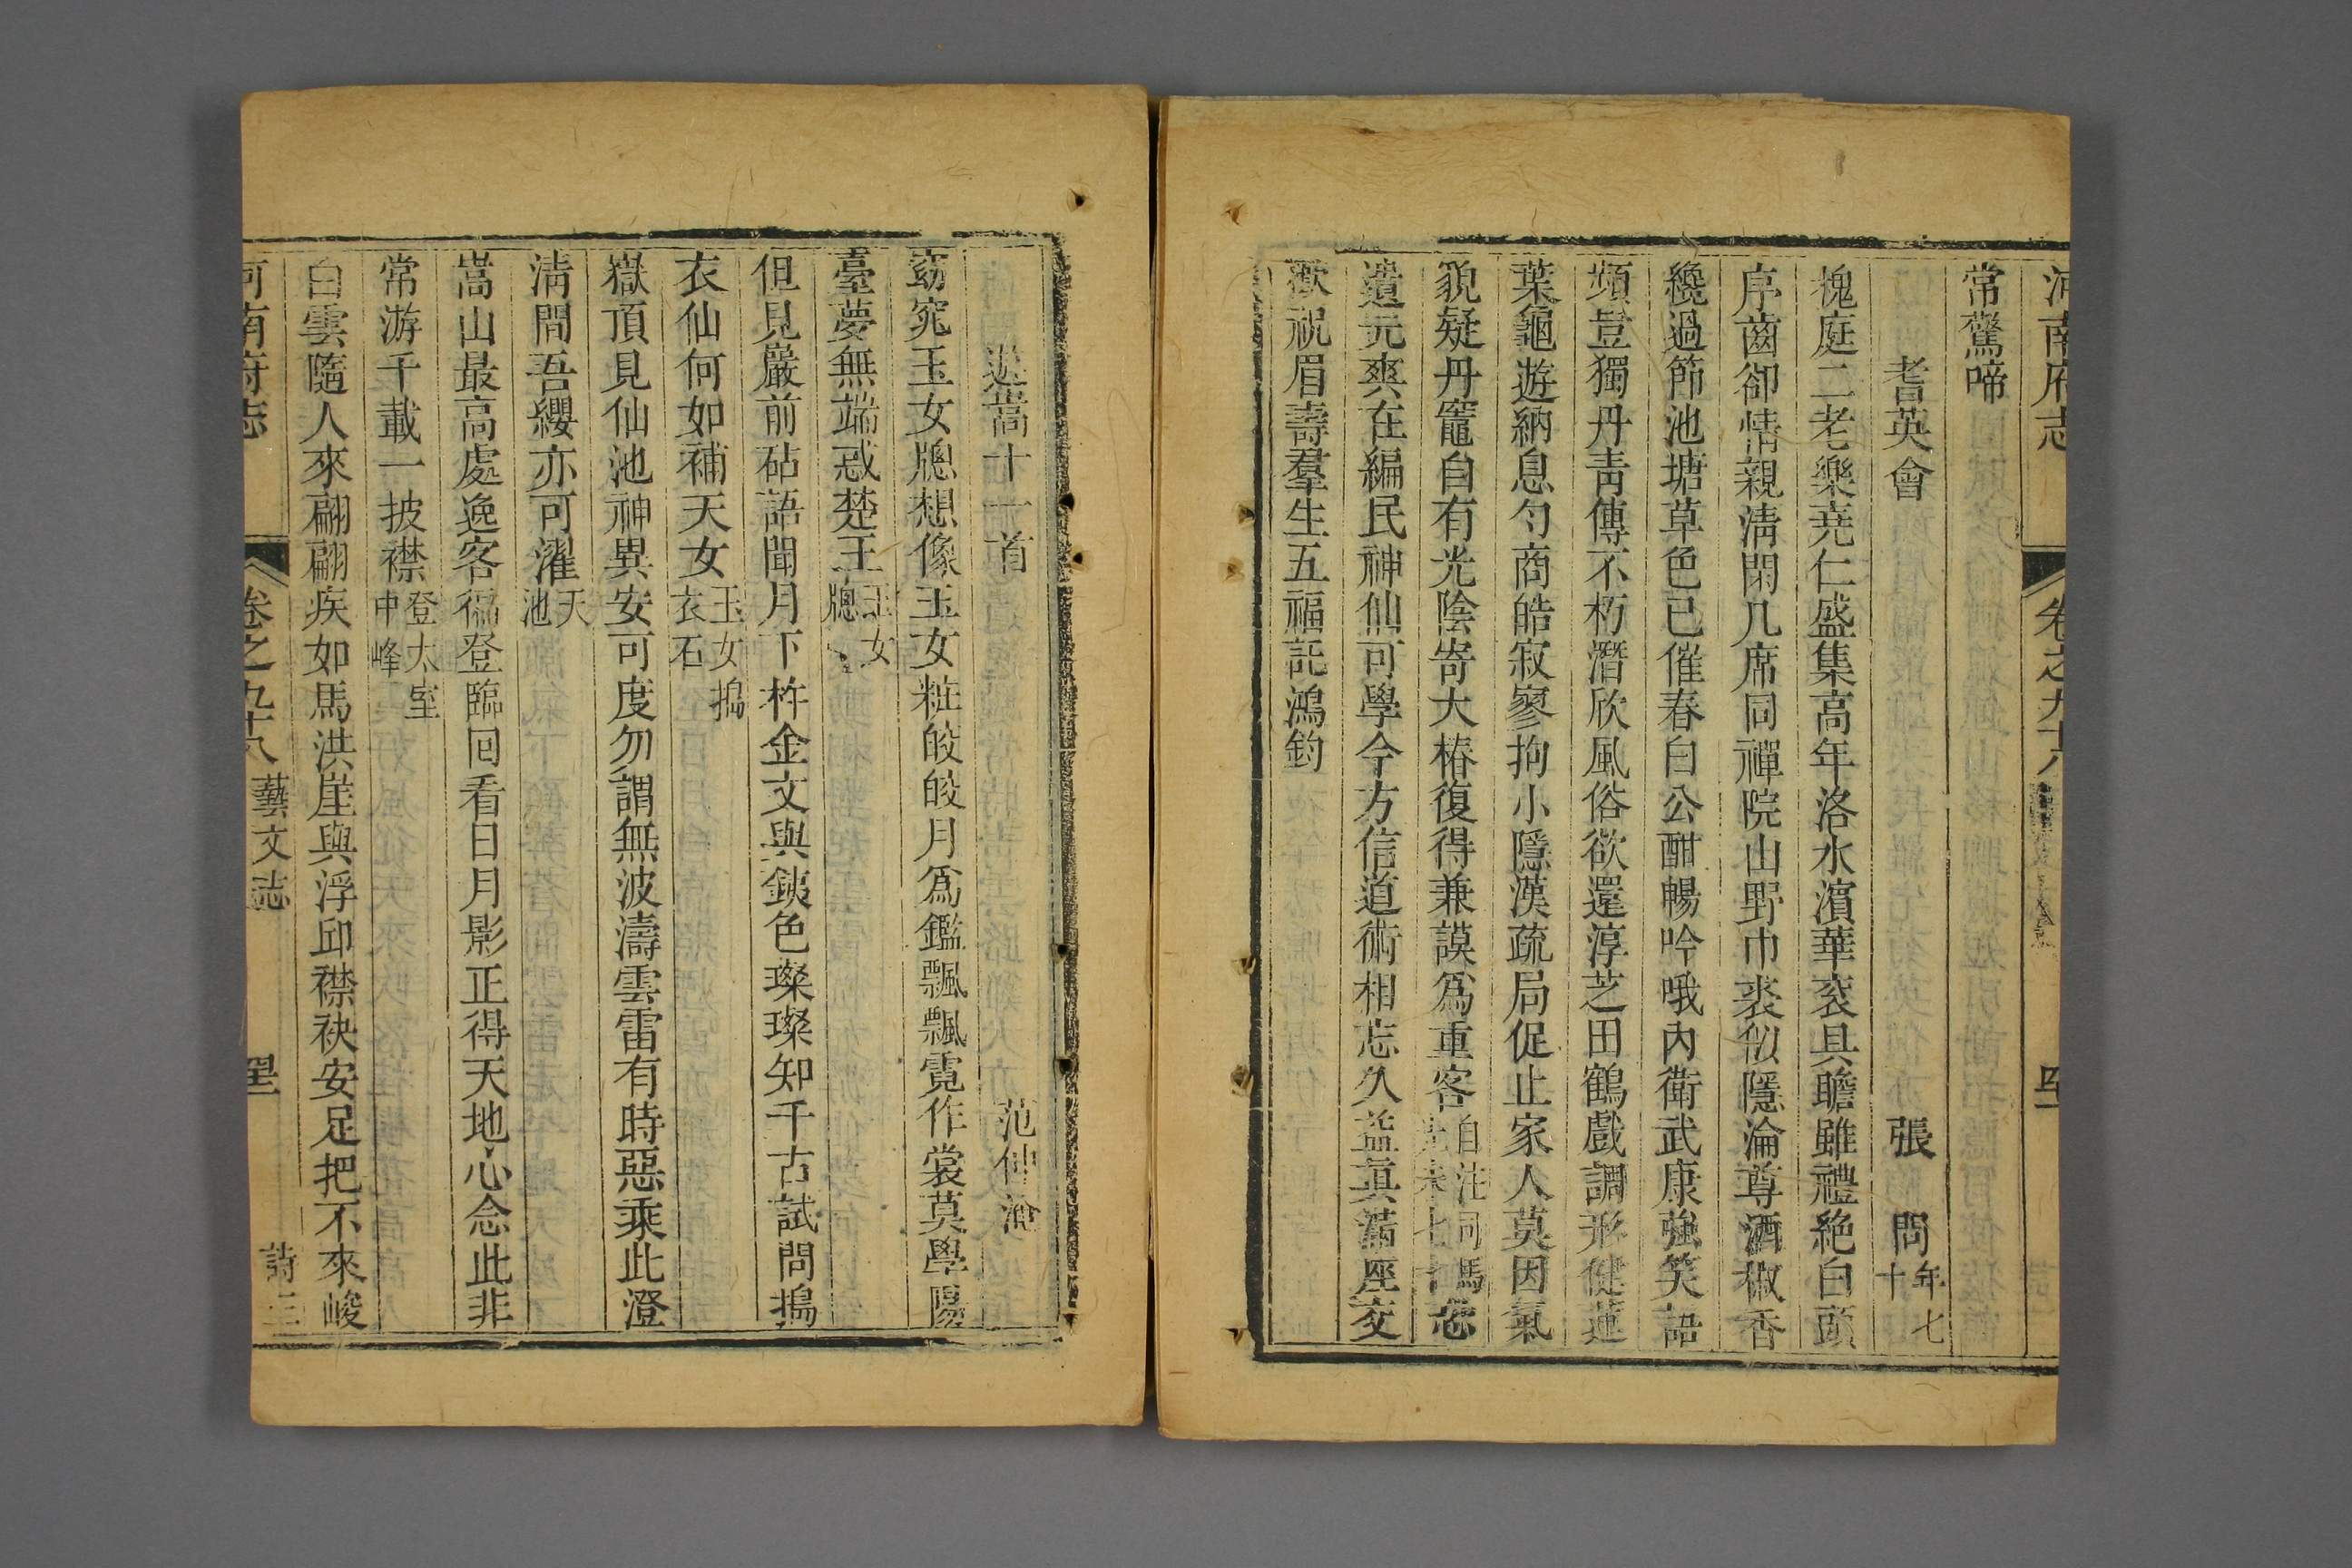 河南府志 卷之九十八
常驚啼
耆英會 張 問年七十
槐庭二老樂堯仁盛集高年洛水濱華袞具瞻雖禮絶白頭
序齒卻情親淸閑几席同禪院山野巾裘似隱淪尊酒椒香
纔過節池塘草色已催春白公酣暢吟哦內衛武康強笑語
頻豈獨丹靑傳不朽潛欣風俗欲還淳芝田鶴戲調形健蓮
葉龜遊納息勻商皓寂寥拘小隱漢疏局促止家人莫因氣
貌疑丹竈自有光陰寄大椿復得兼謨爲重客自注司馬七十志
遺元爽在編民神仙可學今方信道術相忘久益眞滿座交
歡祝眉壽羣生五福託鴻鈞
遊嵩十一首 范仲淹
窈窕玉女牕想像玉女粧皎皎月爲鑑飄飄霓作裳莫學陽
臺夢無端惑楚王玉女牕
但見巖前砧語聞月下杵金文與鐵色璨璨知千古試問搗
衣仙何如補天女玉女搗衣石
嶽頂見仙池神異安可度勿謂無波濤雲雷有時惡乘此澄
淸間吾纓亦可濯天池
嵩山最高處逸客徧登臨回看日月影正得天地心念此非
常游千載一披襟登太室中峰
白雲隨人來翩翩疾如馬洪崖與浮邱襟袂安足把不來峻
河南府志 卷之九十八 藝文志 詩三